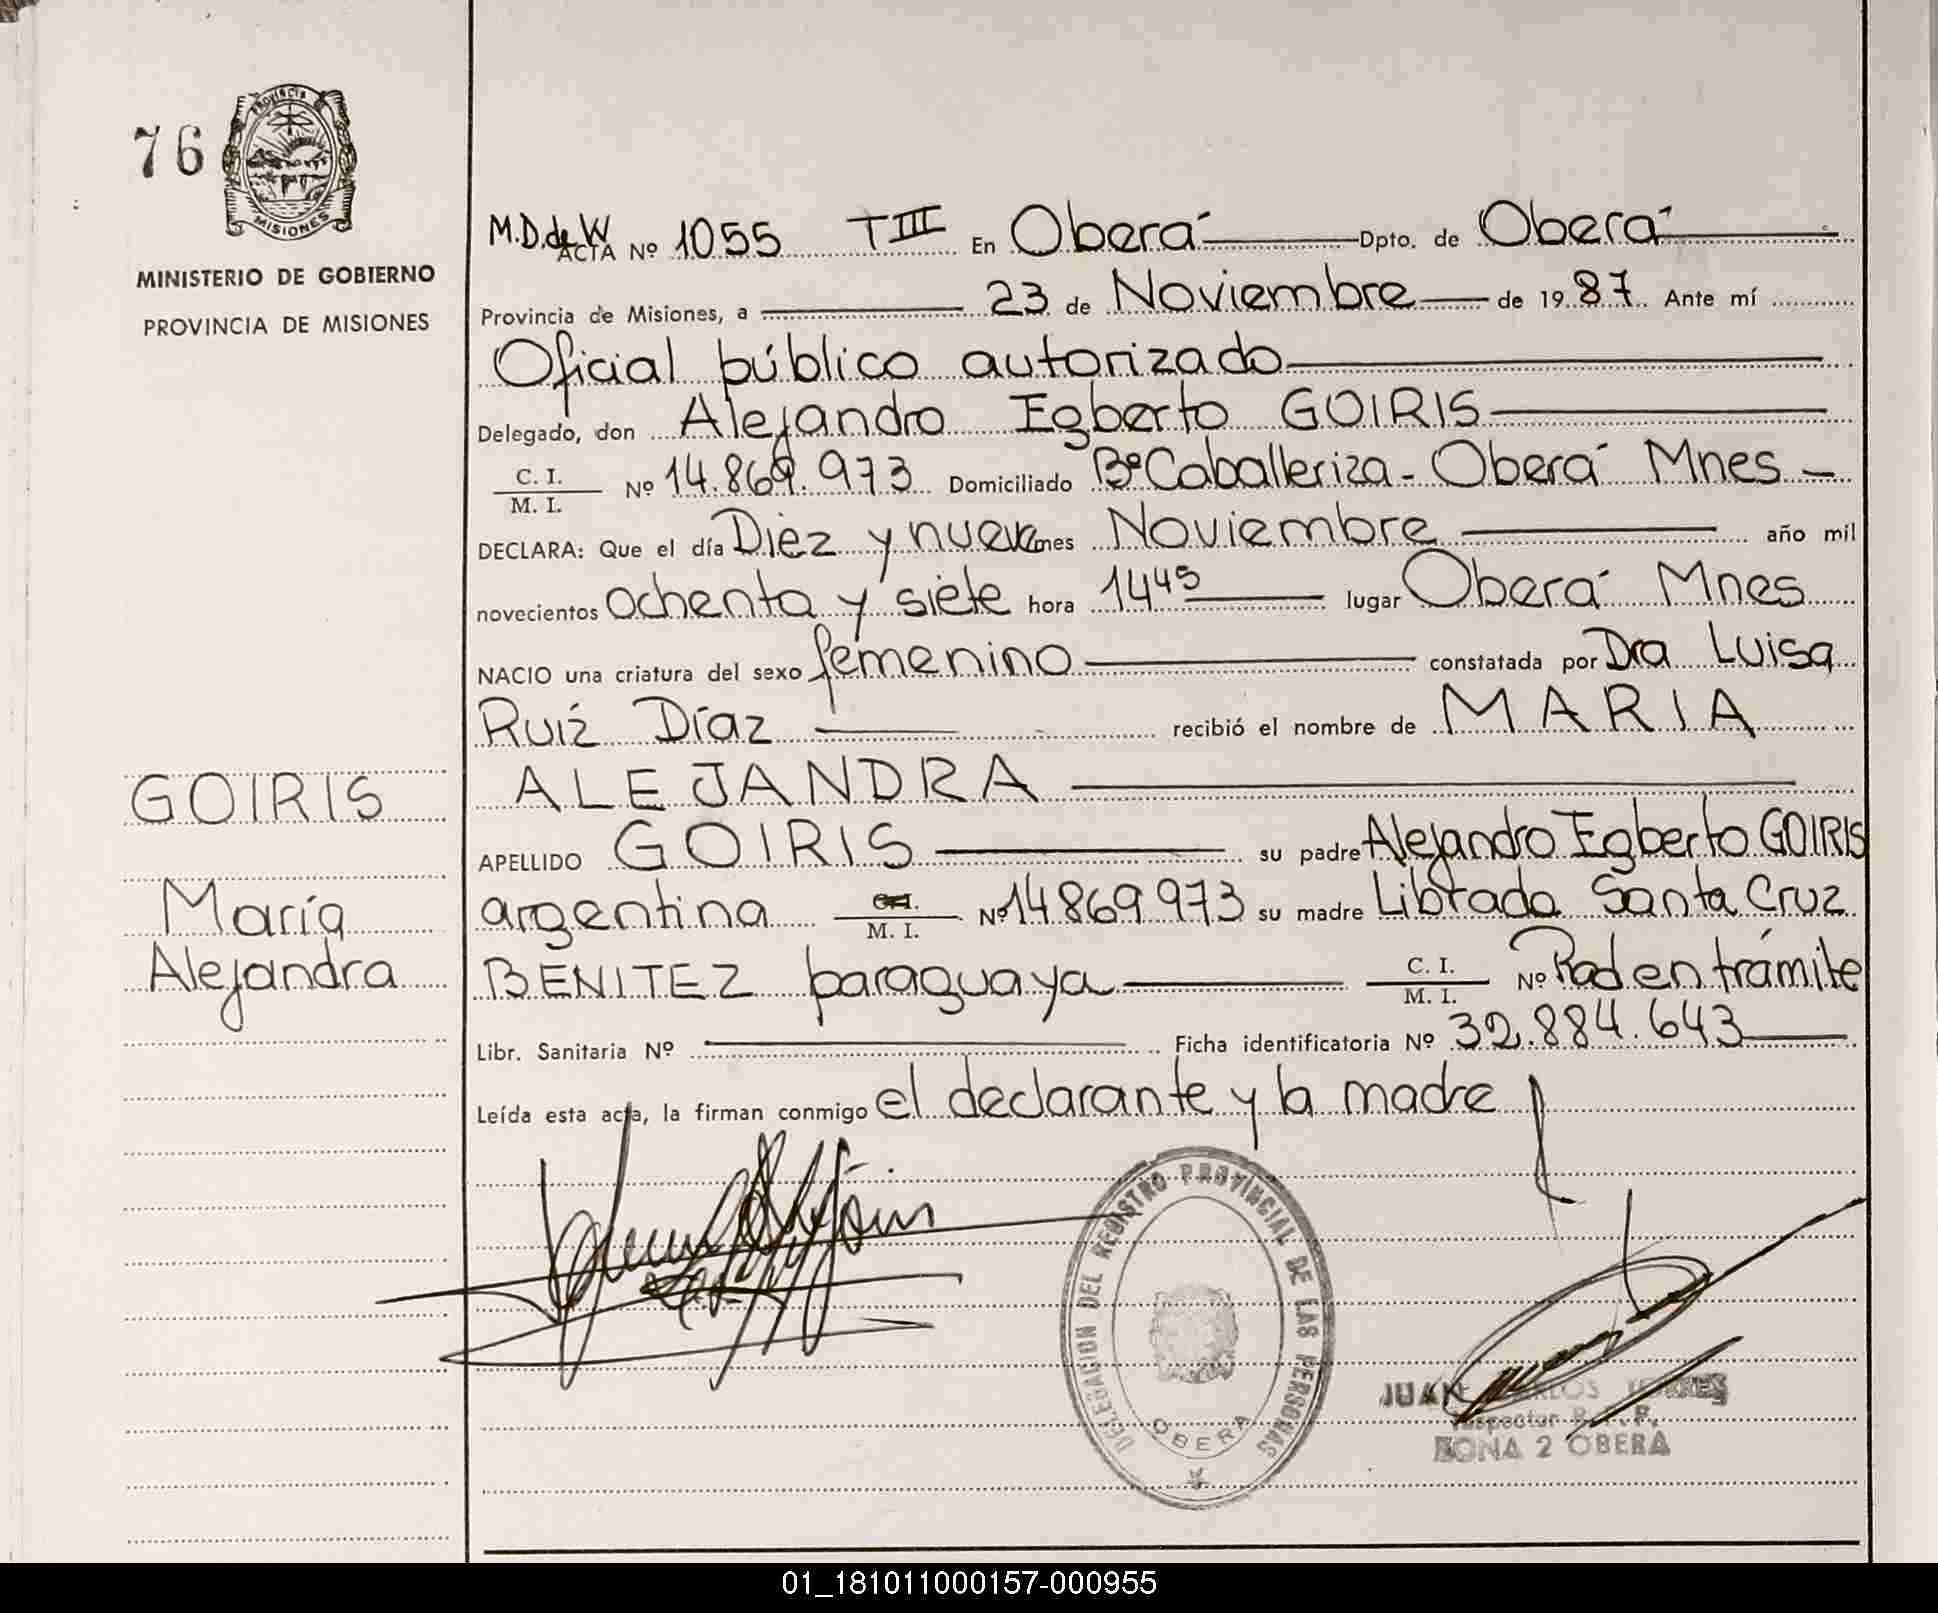 76
PROVINCIA
MISIONES
MINISTERIO DE GOBIERNO
PROVINCIA DE MISIONES
M.D. de W
ACTA Nº 1055 TIII En Oberá Dpto. de Oberá
Provincia de Misiones, a 23 de Noviembre de 1987. Ante mí
Oficial público autorizado
Delegado, don Alejandro Egberto GOIRIS
C. I.
M. I. Nº 14.869.973 Domiciliado Bº Caballeriza - Oberá Mnes -
DECLARA: Que el día Diez y nueve mes Noviembre año mil
novecientos ochenta y siete hora 14 45 lugar Oberá Mnes
NACIO una criatura del sexo femenino constatada por Dra Luisa
Ruiz Díaz recibió el nombre de MARIA
ALEJANDRA
APELLIDO GOIRIS su padre Alejandro Egberto GOIRIS
argentina M. I. Nº 14869973 su madre Librada Santa Cruz
BENITEZ paraguaya C. I. M. I. Nº Rad en trámite
Libr. Sanitaria Nº Ficha identificatoria Nº 32.884.643
Leída esta acta, la firman conmigo el declarante y la madre
GOIRIS
María
Alejandra
DELEGACION DEL REGISTRO PROVINCIAL DE LAS PERSONAS
OBERA
JUAN CARLOS TORRES
Inspector R.P.P.
ZONA 2 OBERA
01_181011000157-000955